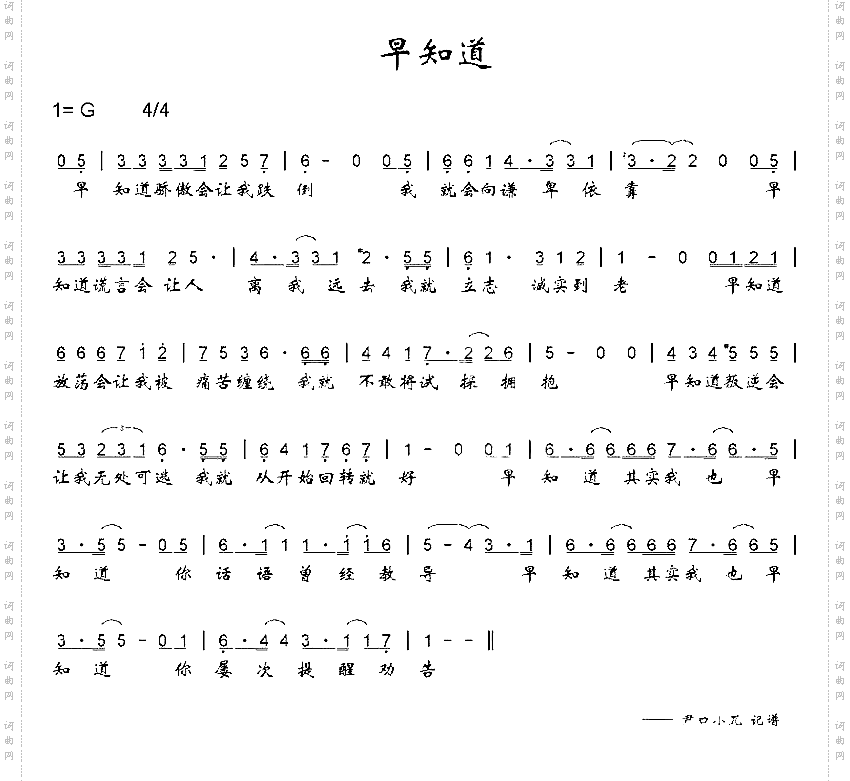 早知道
1= G 4/4
0 5 | 3 3 3 3 1 2 5 7 | 6 - 0 0 5 | 6 6 1 4 · 3 3 1 | 3 · 2 2 0 0 5 |
早 知道骄傲会让我跌 倒 我 就会向谦 卑 依 靠 早
3 3 3 3 1 2 5 · | 4 · 3 3 1 #2 · 5 5 | 6 1 · 3 1 2 | 1 - 0 0 1 2 1 |
知道谎言会 让人 离 我 远 去 我就 立志 诚实到 老 早知道
6 6 6 7 1 2 | 7 5 3 6 · 6 6 | 4 4 1 7 · 2 2 6 | 5 - 0 0 | 4 3 4 #5 5 5 |
放荡会让我被 痛苦缠绕 我就 不敢将试 探 拥 抱 早知道叛逆会
5 3 2 3 1 6 · 5 5 | 6 4 1 7 6 7 | 1 - 0 0 1 | 6 · 6 6 6 6 7 · 6 6 · 5 |
让我无处可逃 我就 从开始回转就 好 早 知 道 其实我 也 早
3 · 5 5 - 0 5 | 6 · 1 1 1 · 1 1 6 | 5 - 4 3 · 1 | 6 · 6 6 6 6 7 · 6 6 5 |
知 道 你 话 语 曾 经 教 导 早 知 道 其实我 也早
3 · 5 5 - 0 1 | 6 · 4 4 3 · 1 1 7 | 1 - - ‖
知 道 你 屡 次 提 醒 劝 告
—— 尹口小兄 记谱
词曲网